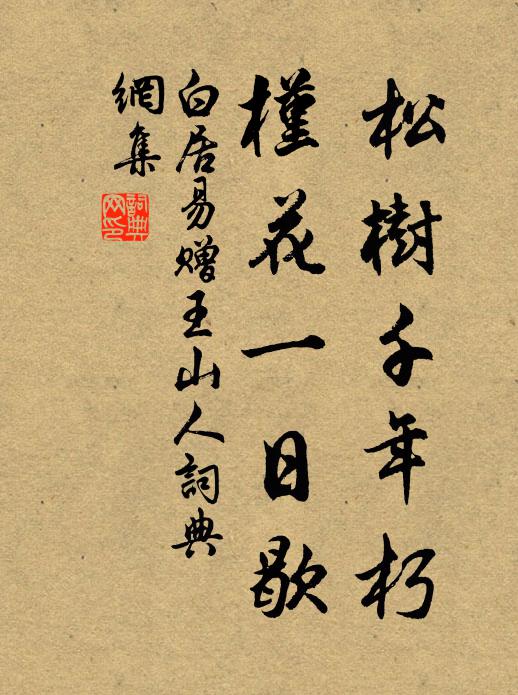 松樹千年朽
槿花一日歇
白居易贈王山人詞典
網集
詞典網印